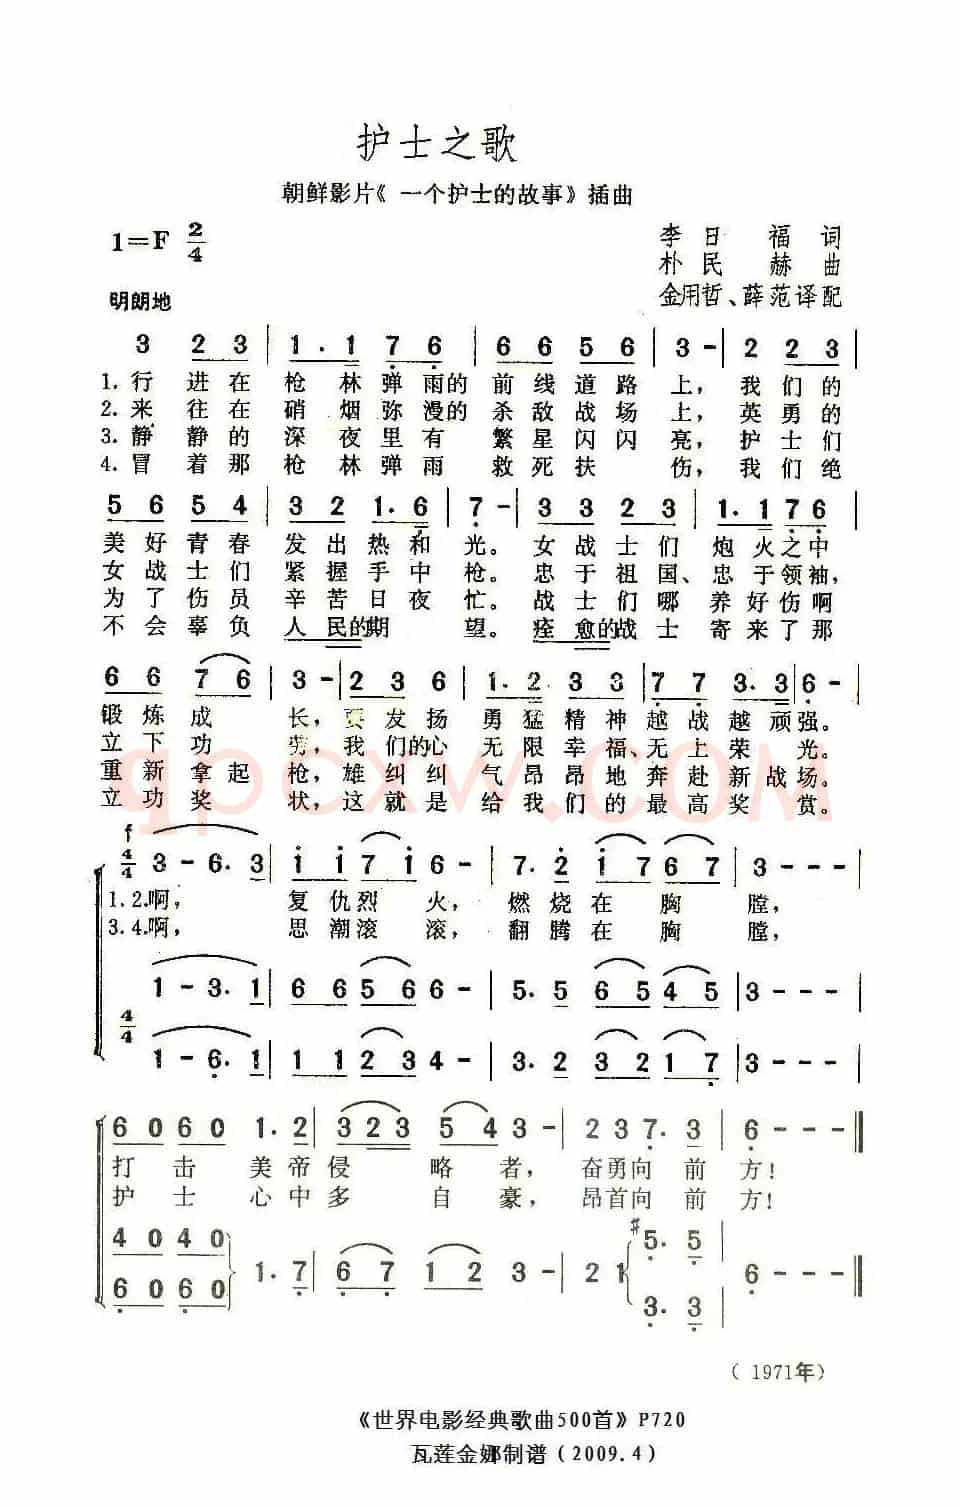 护士之歌
朝鲜影片《一个护士的故事》插曲
1=F 2/4
李日福词
朴民赫曲
金用哲、薛范译配
明朗地
3 2 3 | 1 . 1 7 6 | 6 6 5 6 | 3 - | 2 2 3 |
1.行进在枪林弹雨的前线道路上，我们的
2.来往在硝烟弥漫的杀敌战场上，英勇的
3.静静的深夜里有繁星闪闪亮，护士们
4.冒着那枪林弹雨救死扶伤，我们绝
5 6 5 4 | 3 2 1. 6 | 7 - | 3 3 2 3 | 1. 1 7 6 |
美好青春发出热和光。女战士们炮火之中
女战士们紧握手中枪。忠于祖国、忠于领袖，
为了伤员辛苦日夜忙。战士们哪养好伤啊
不会辜负人民的期望。痊愈的战士寄来了那
6 6 7 6 | 3 - | 2 3 6 | 1. 2 3 3 | 7 7 3. 3 | 6 - |
锻炼成长，更发扬勇猛精神越战越顽强。
立下功劳，我们的心无限幸福、无上荣光。
重新拿起枪，雄纠纠气昂昂地奔赴新战场。
立功奖状，这就是给我们的最高奖赏。
f
4/4 3 - 6. 3 | i i 7 i 6 - | 7. 2 i 7 6 7 | 3 - - - |
1.2.啊，复仇烈火，燃烧在胸膛，
3.4.啊，思潮滚滚，翻腾在胸膛，
1 - 3. 1 | 6 6 5 6 6 - | 5. 5 6 5 4 5 | 3 - - - |
4/4 1 - 6. 1 | 1 1 2 3 4 - | 3. 2 3 2 1 7 | 3 - - - |
6 0 6 0 1. 2 | 3 2 3 5 4 3 - | 2 3 7. 3 | 6 - - - ‖
打击美帝侵略者，奋勇向前方！
护士心中多自豪，昂首向前方！
4 0 4 0
1. 7 | 6 7 1 2 3 - | 2 1 #5. 5 | 6 - - - ‖
6 0 6 0
3. 3
（1971年）
《世界电影经典歌曲500首》P720
瓦莲金娜制谱（2009.4）
qpcxw.com